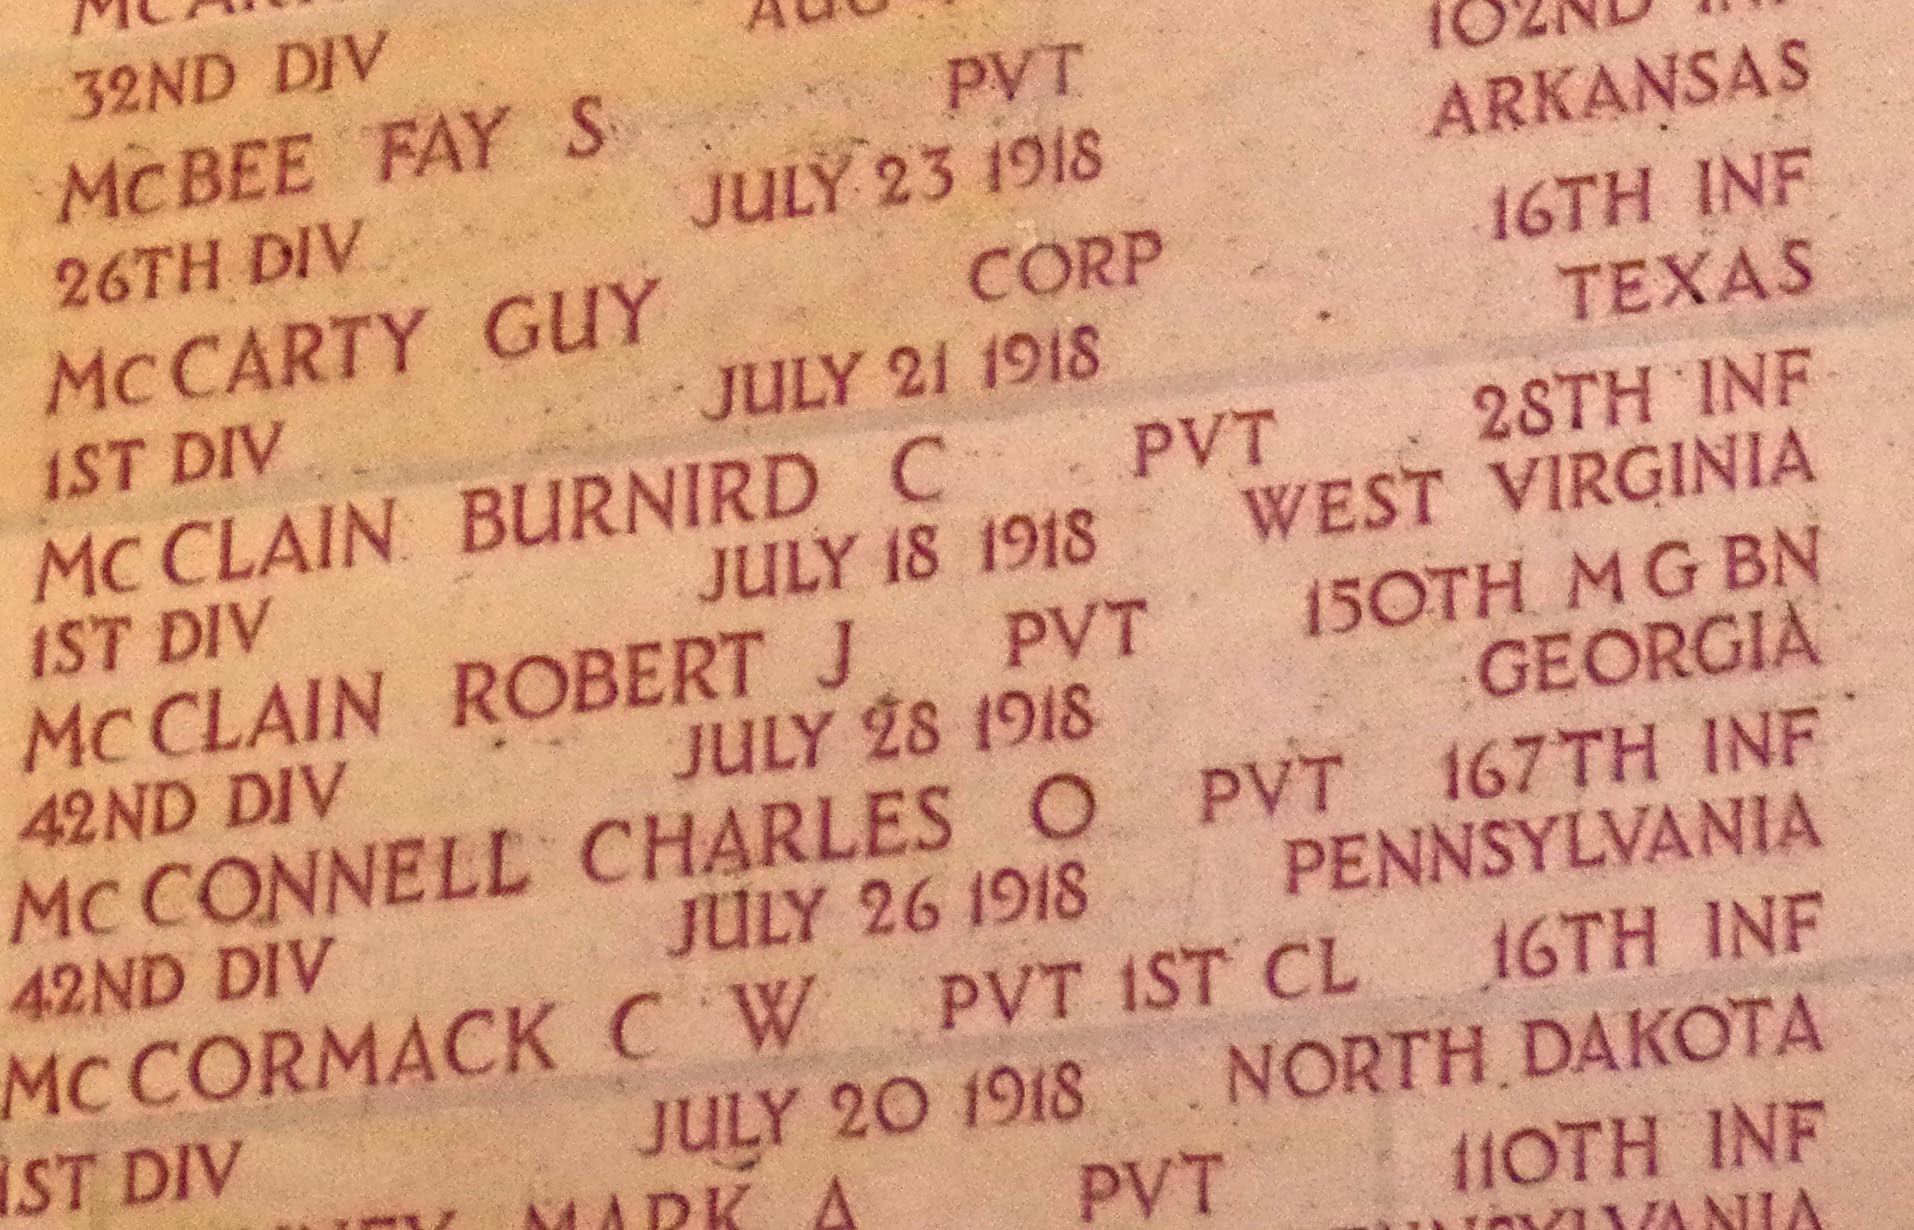 32ND DIV AUG
McBEE FAY S PVT 102ND INF
26TH DIV JULY 23 1918 ARKANSAS
McCARTY GUY CORP 16TH INF
1ST DIV JULY 21 1918 TEXAS
McCLAIN BURNIRD C PVT 28TH INF
1ST DIV JULY 18 1918 WEST VIRGINIA
McCLAIN ROBERT J PVT 150TH M G BN
42ND DIV JULY 28 1918 GEORGIA
McCONNELL CHARLES O PVT 167TH INF
42ND DIV JULY 26 1918 PENNSYLVANIA
McCORMACK C W PVT 1ST CL 16TH INF
1ST DIV JULY 20 1918 NORTH DAKOTA
MARK A PVT 110TH INF